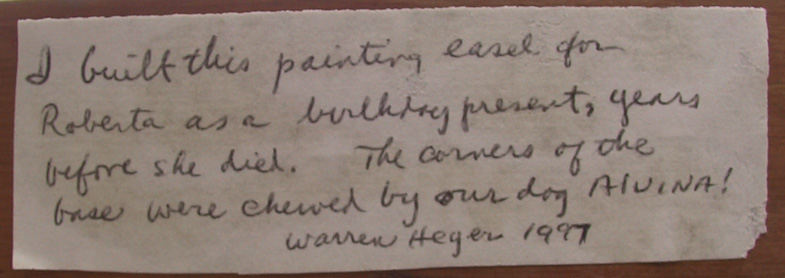 I built this painting easel for
Roberta as a birthday present, years
before she died. The corners of the
base were chewed by our dog AlVINA!
Warren Heger 1997